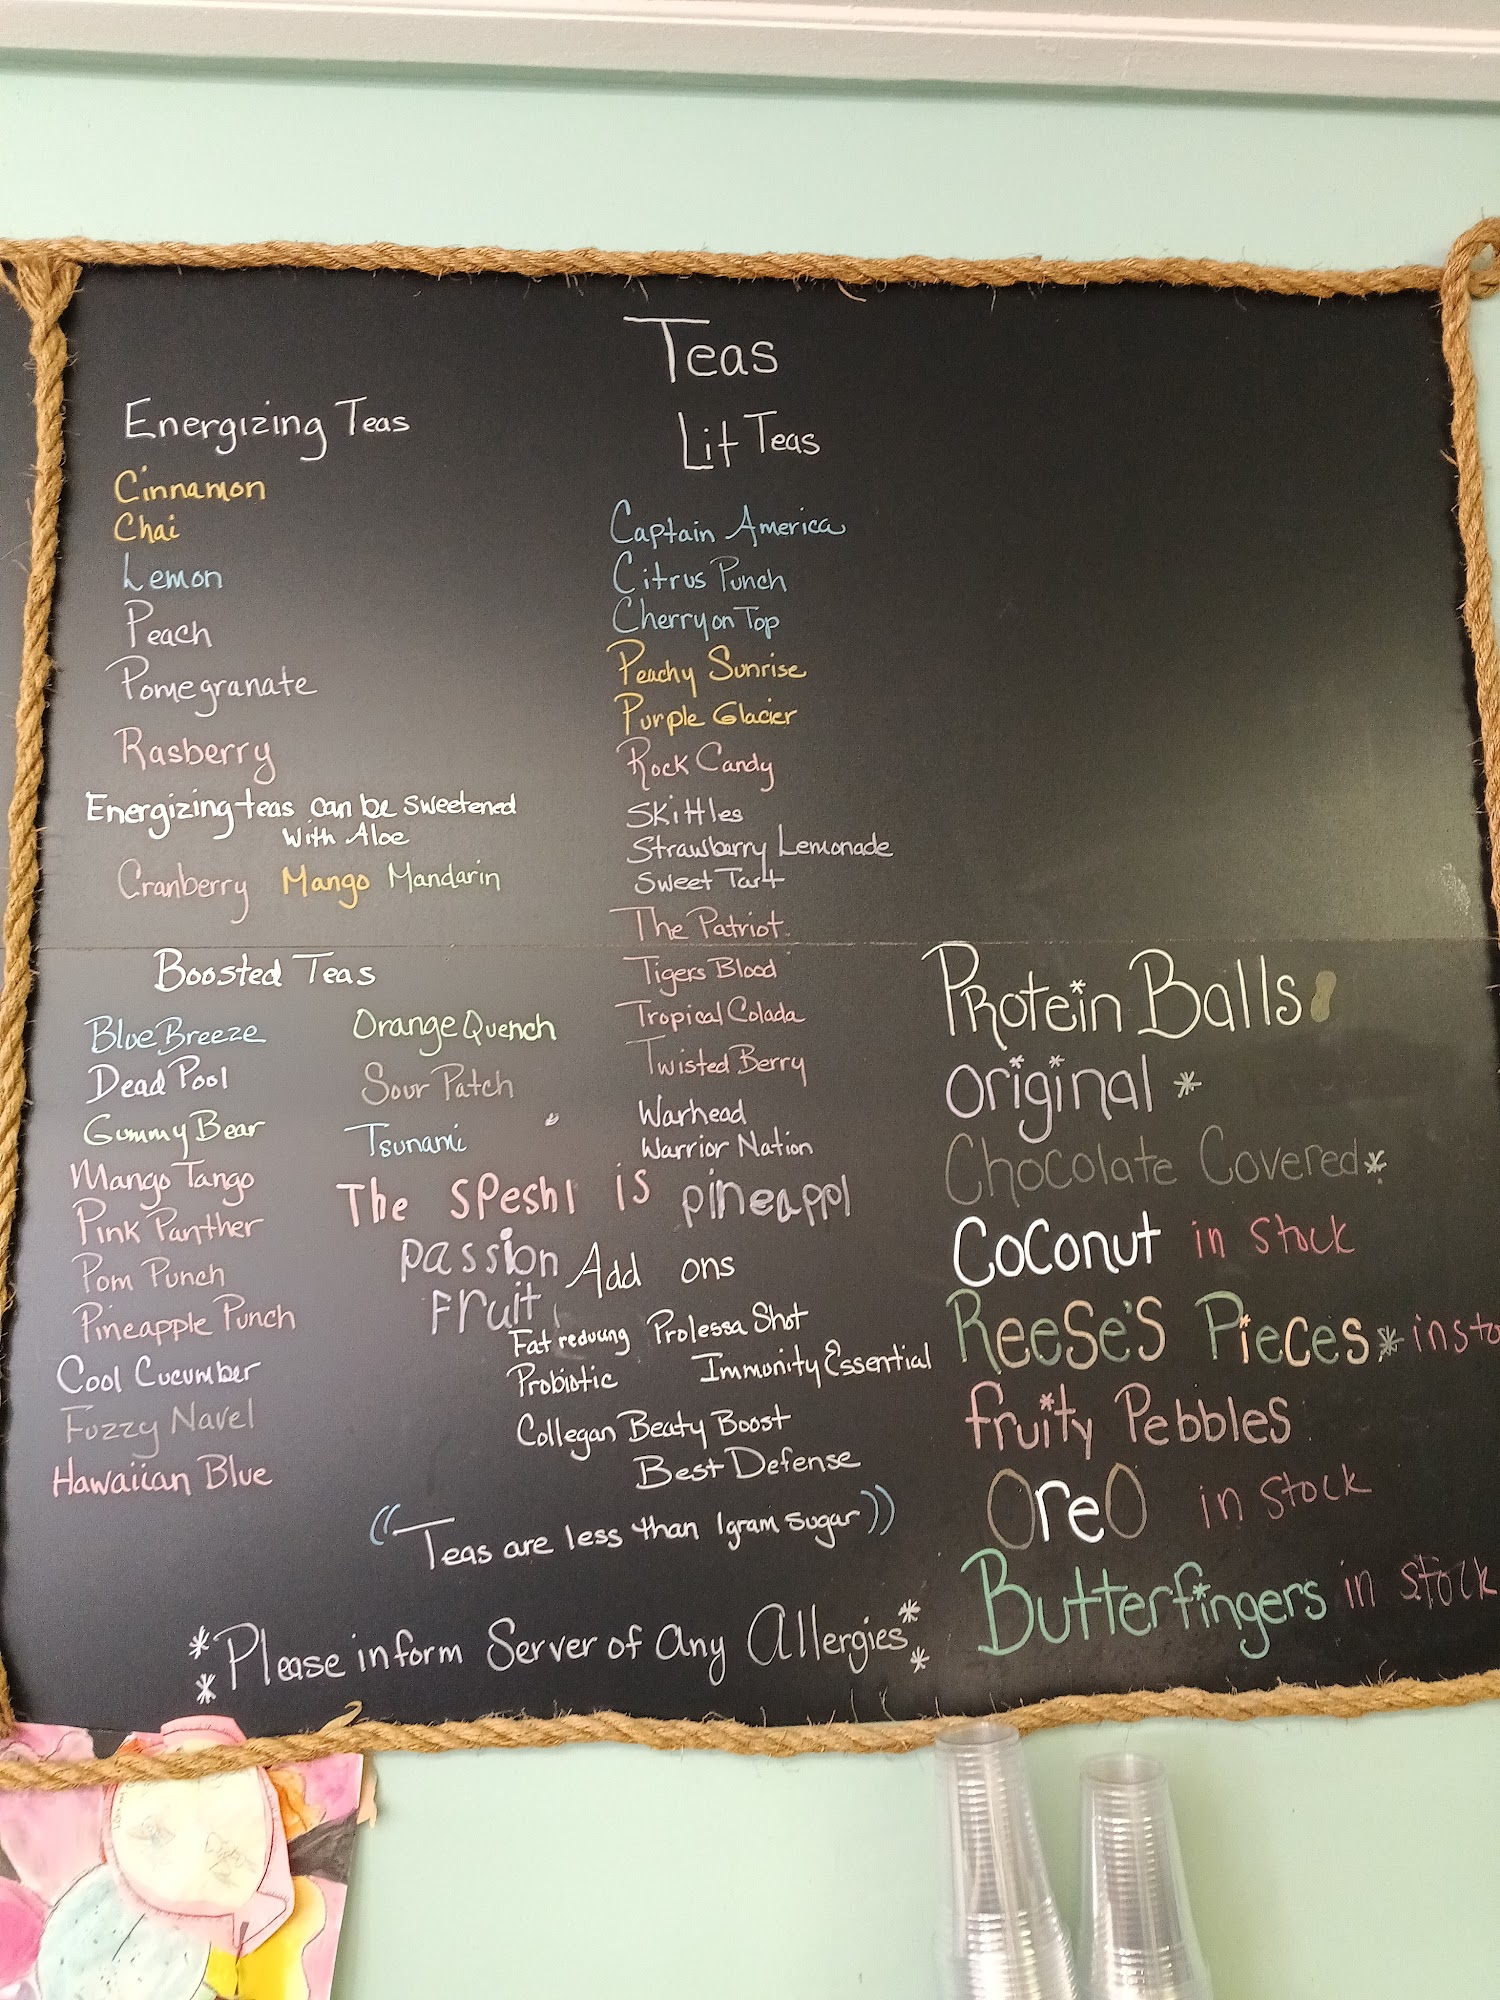 Teas
Energizing Teas
Cinnamon
Chai
Lemon
Peach
Pomegranate
Rasberry
Energizing teas can be sweetened
With Aloe
Cranberry Mango Mandarin
Boosted Teas
Blue Breeze
Dead Pool
Gummy Bear
Mango Tango
Pink Panther
Pom Punch
Pineapple Punch
Cool Cucumber
Fuzzy Navel
Hawaiian Blue
Orange Quench
Sour Patch
Tsunami
Lit Teas
Captain America
Citrus Punch
Cherry on Top
Peachy Sunrise
Purple Glacier
Rock Candy
Skittles
Strawberry Lemonade
Sweet Tart
The Patriot
Tigers Blood
Tropical Colada
Twisted Berry
Warhead
Warrior Nation
The speshl is pineappl
passion
Fruit
Add ons
Fat reducing Prolessa Shot
Probiotic Immunity Essential
Collegan Beaty Boost
Best Defense
((Teas are less than 1gram sugar))
**Please inform Server of any Allergies**
Protein Balls
Original *
Chocolate Covered *
Coconut in stock
Reese's Pieces * in sto
fruity Pebbles
Oreo in stock
Butterfingers in stock